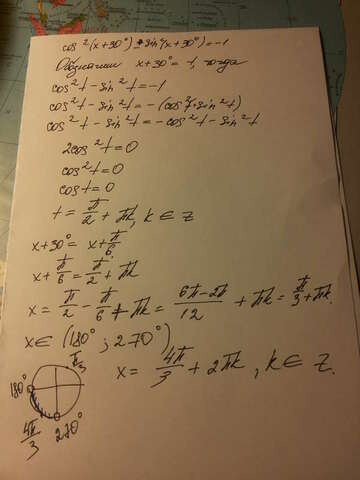 cos²(x+30°) - sin²(x+30°) = -1
Обозначим x+30° = t, тогда
cos²t - sin²t = -1
cos²t - sin²t = -(cos²t + sin²t)
cos²t - sin²t = -cos²t - sin²t
2cos²t = 0
cos²t = 0
cos t = 0
t = π/2 + πk, k ∈ Z
x+30° = x+π/6
x + π/6 = π/2 + πk
x = π/2 - π/6 + πk = (6π-2π)/12 + πk = π/3 + πk
x ∈ (180°; 270°)
π/3
180°
x = 4π/3 + 2πk, k ∈ Z.
4π/3 270°